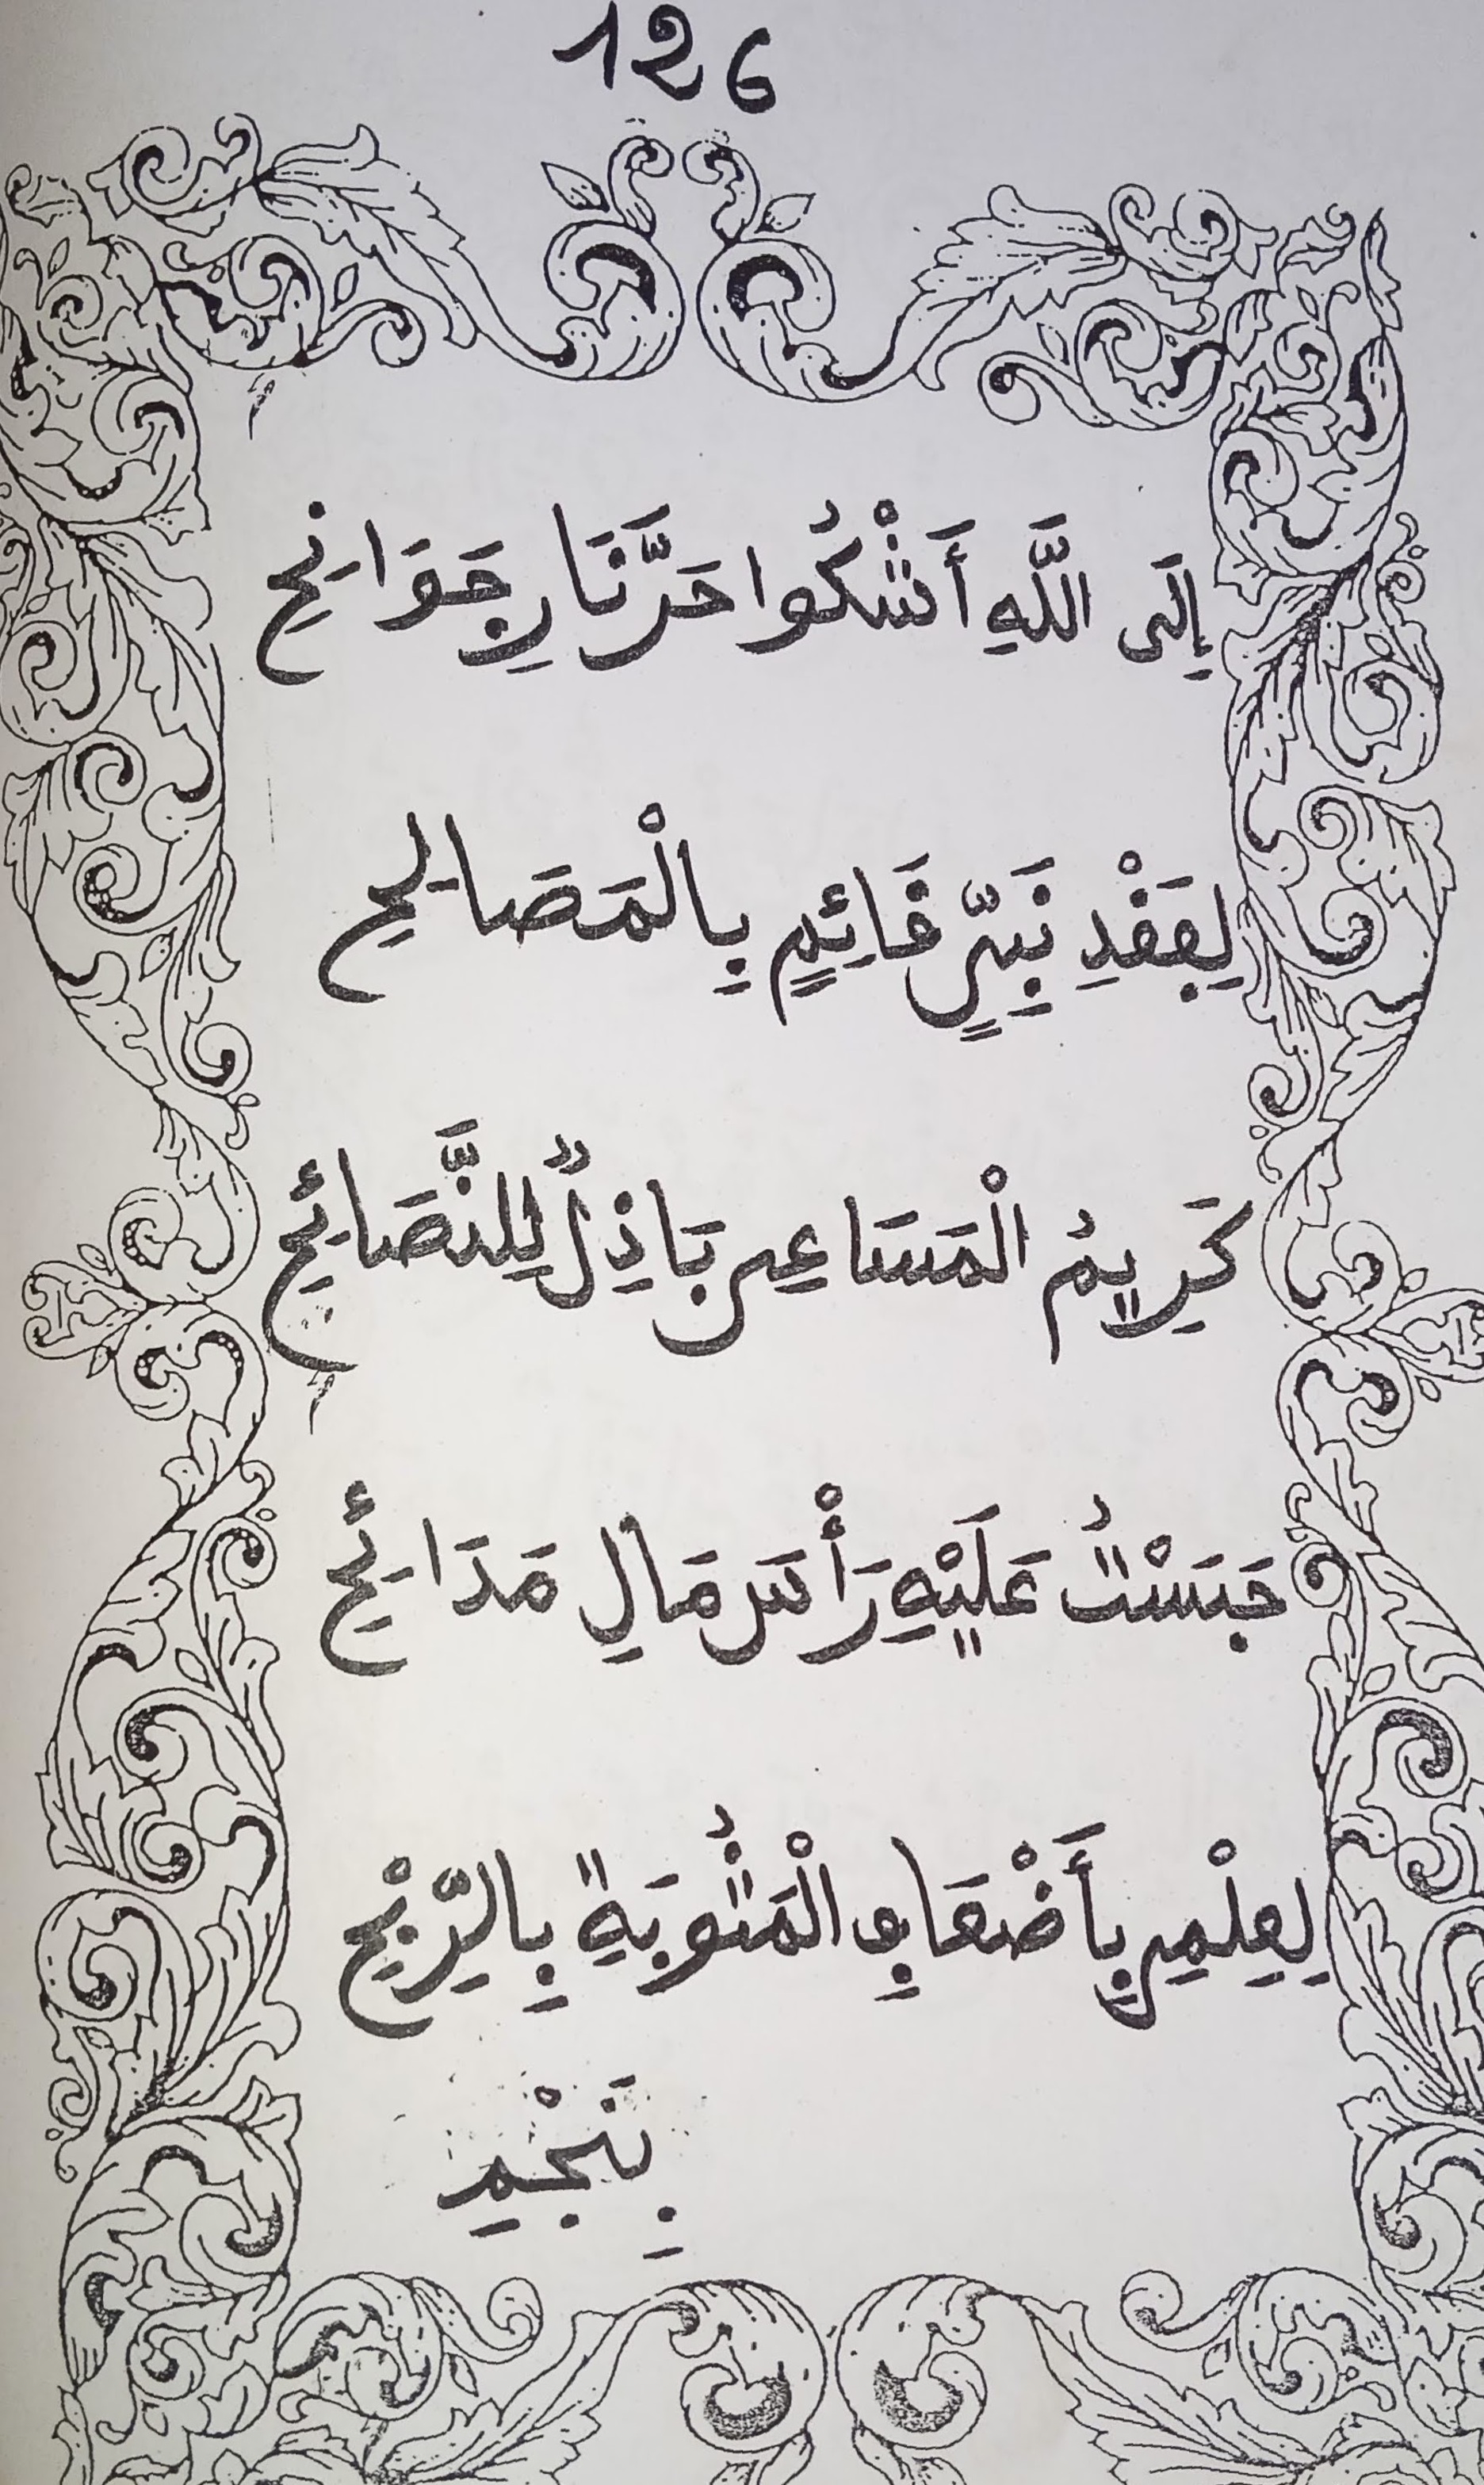 126
إِلَى اللَّهِ أَشْكُوا حَرَّ نَارِ جَوَانِحِ
لِفَقْدِ نَبِيٍّ قَائِمٍ بِالْمَصَالِحِ
كَرِيمُ الْمَسَاعِي بَاذِلٌ لِلنَّصَائِحِ
حَبَسْتُ عَلَيْهِ رَأْسَ مَالِ مَدَائِحِ
لِعِلْمِي بِأَضْعَافِ الْمَثُوبَةِ بِالرِّبْحِ
بِنَجْمِ